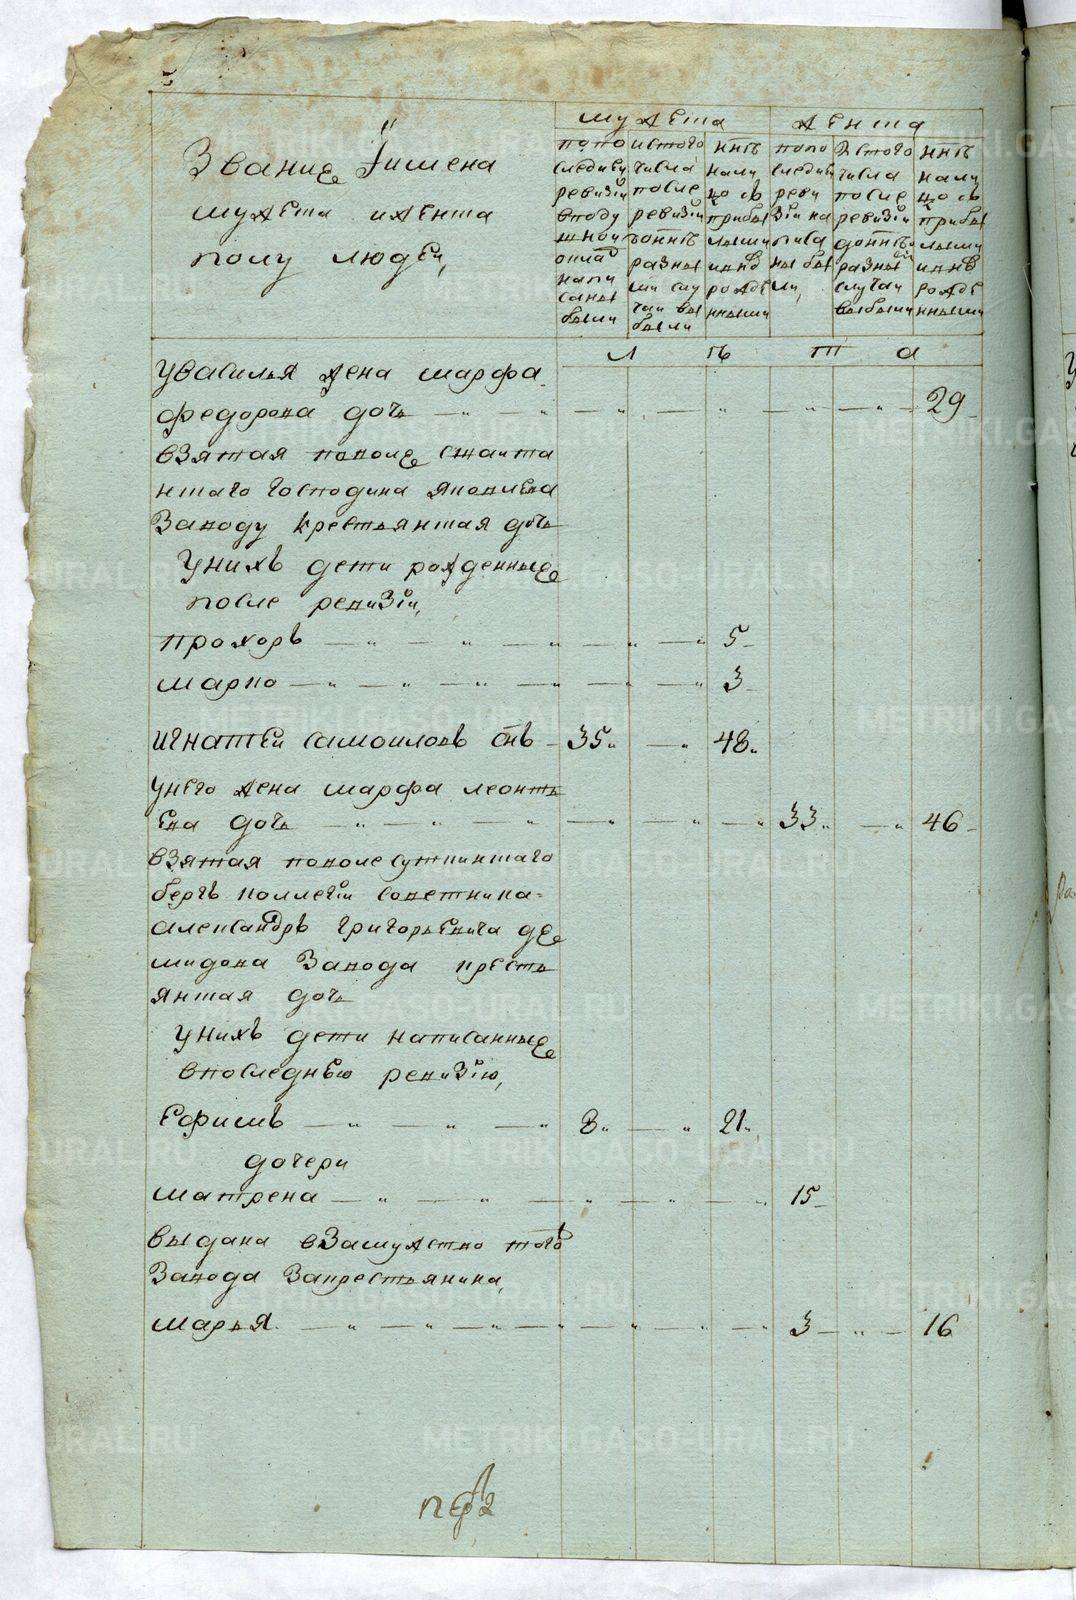 Званіе Їимена
мужеска иженска
полу людеи,
мужеска
женска
попо
следнеи
ревизіи
вподу
шнои
оклад
напи
саны
были
истого
числа
после
ревизіи
ъоннѣ
разны
ми слу
чаи вы
были
ннѣ
нали
цо съ
прибы
лыми
ивнв
рожде
нными
попо
следнеи
реви
зіи на
писа
ны бы
ли,
Истого
числа
после
ревизіи
доннѣ
разныи
случаи
выбыли
ннѣ
нали
цо съ
прибы
лыми
ивнв
рожде
нными
л ѣ т а
увасилья жена марфа
федорова дочь 29
взятая поволе сжаита
нскаго господина яковлева
Заводу крестьянская дочь
Унихъ дети рожденные
после ревизіи,
прохоръ 5
марко 3
игнатеи самоиловъ снъ 35 48
унего жена марфа леонть
ева дочь 33 46
взятая поволе суткинскаго
бергъ коллегіи советника
александръ григорьевича де
мидова Завода кресть
янская дочь
унихъ дети написанные
впоследнѣю ревизію,
Ефимъ 8 21
дочери
матрена 15
выдана взамужство того
Завода Закрестьянина,
марья 3 16
METRIKI.GASO-URAL.RU